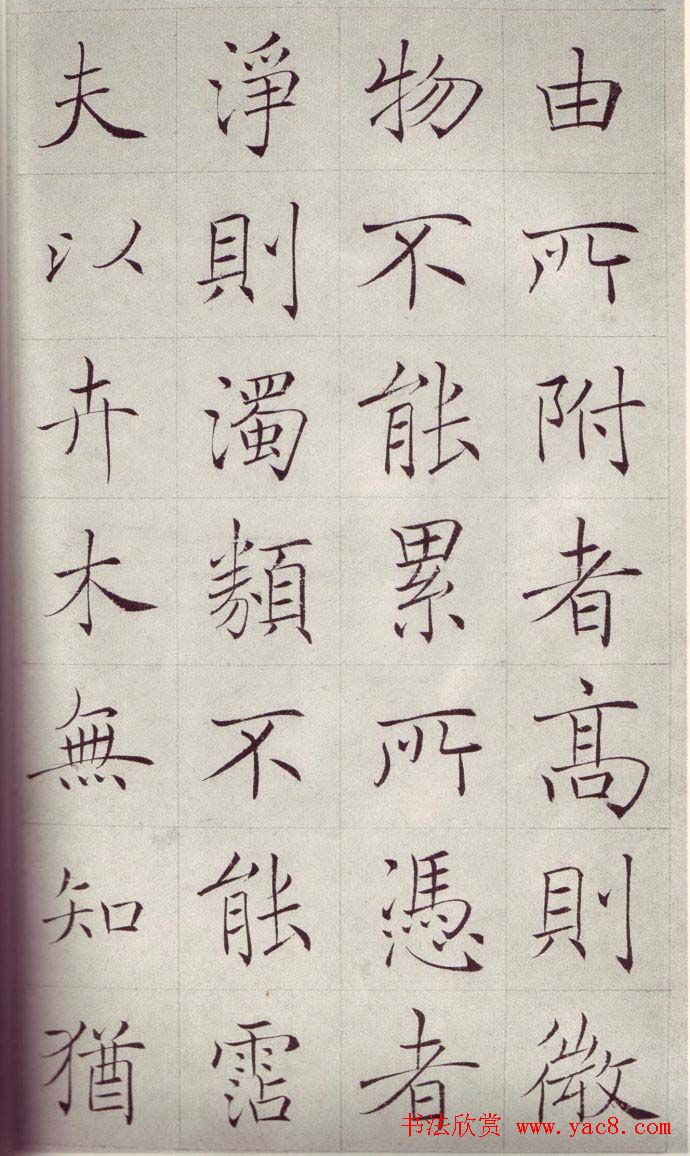 由所附者高則微
物不能累所憑者
淨則濁類不能霑
夫以卉木無知猶
书法欣赏 www.yac8.com